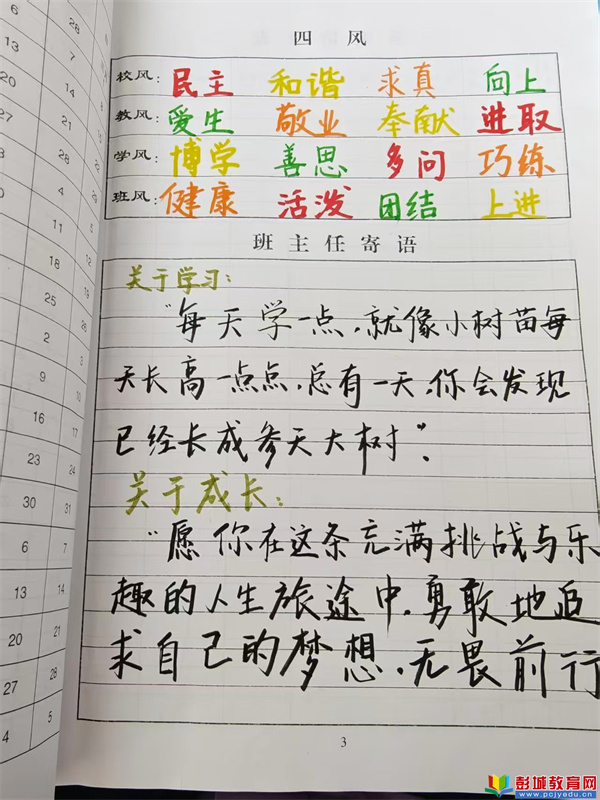 四风
校风：民主 和谐 求真 向上
教风：爱生 敬业 奉献 进取
学风：博学 善思 多问 巧练
班风：健康 活泼 团结 上进
班主任寄语
关于学习：
"每天学一点，就像小树苗每
天长高一点点，总有一天，你会发现
已经长成参天大树"。
关于成长：
"愿你在这条充满挑战与乐
趣的人生旅途中，勇敢地追
求自己的梦想，无畏前行
3
6
13
20
27
3
10
11
18
25
2
9
16
23
30
6
13
20
27
4
28
7
14
21
28
4
5
12
19
26
3
10
17
24
31
7
14
21
28
5
彭城教育网
www.pcjyedu.cn